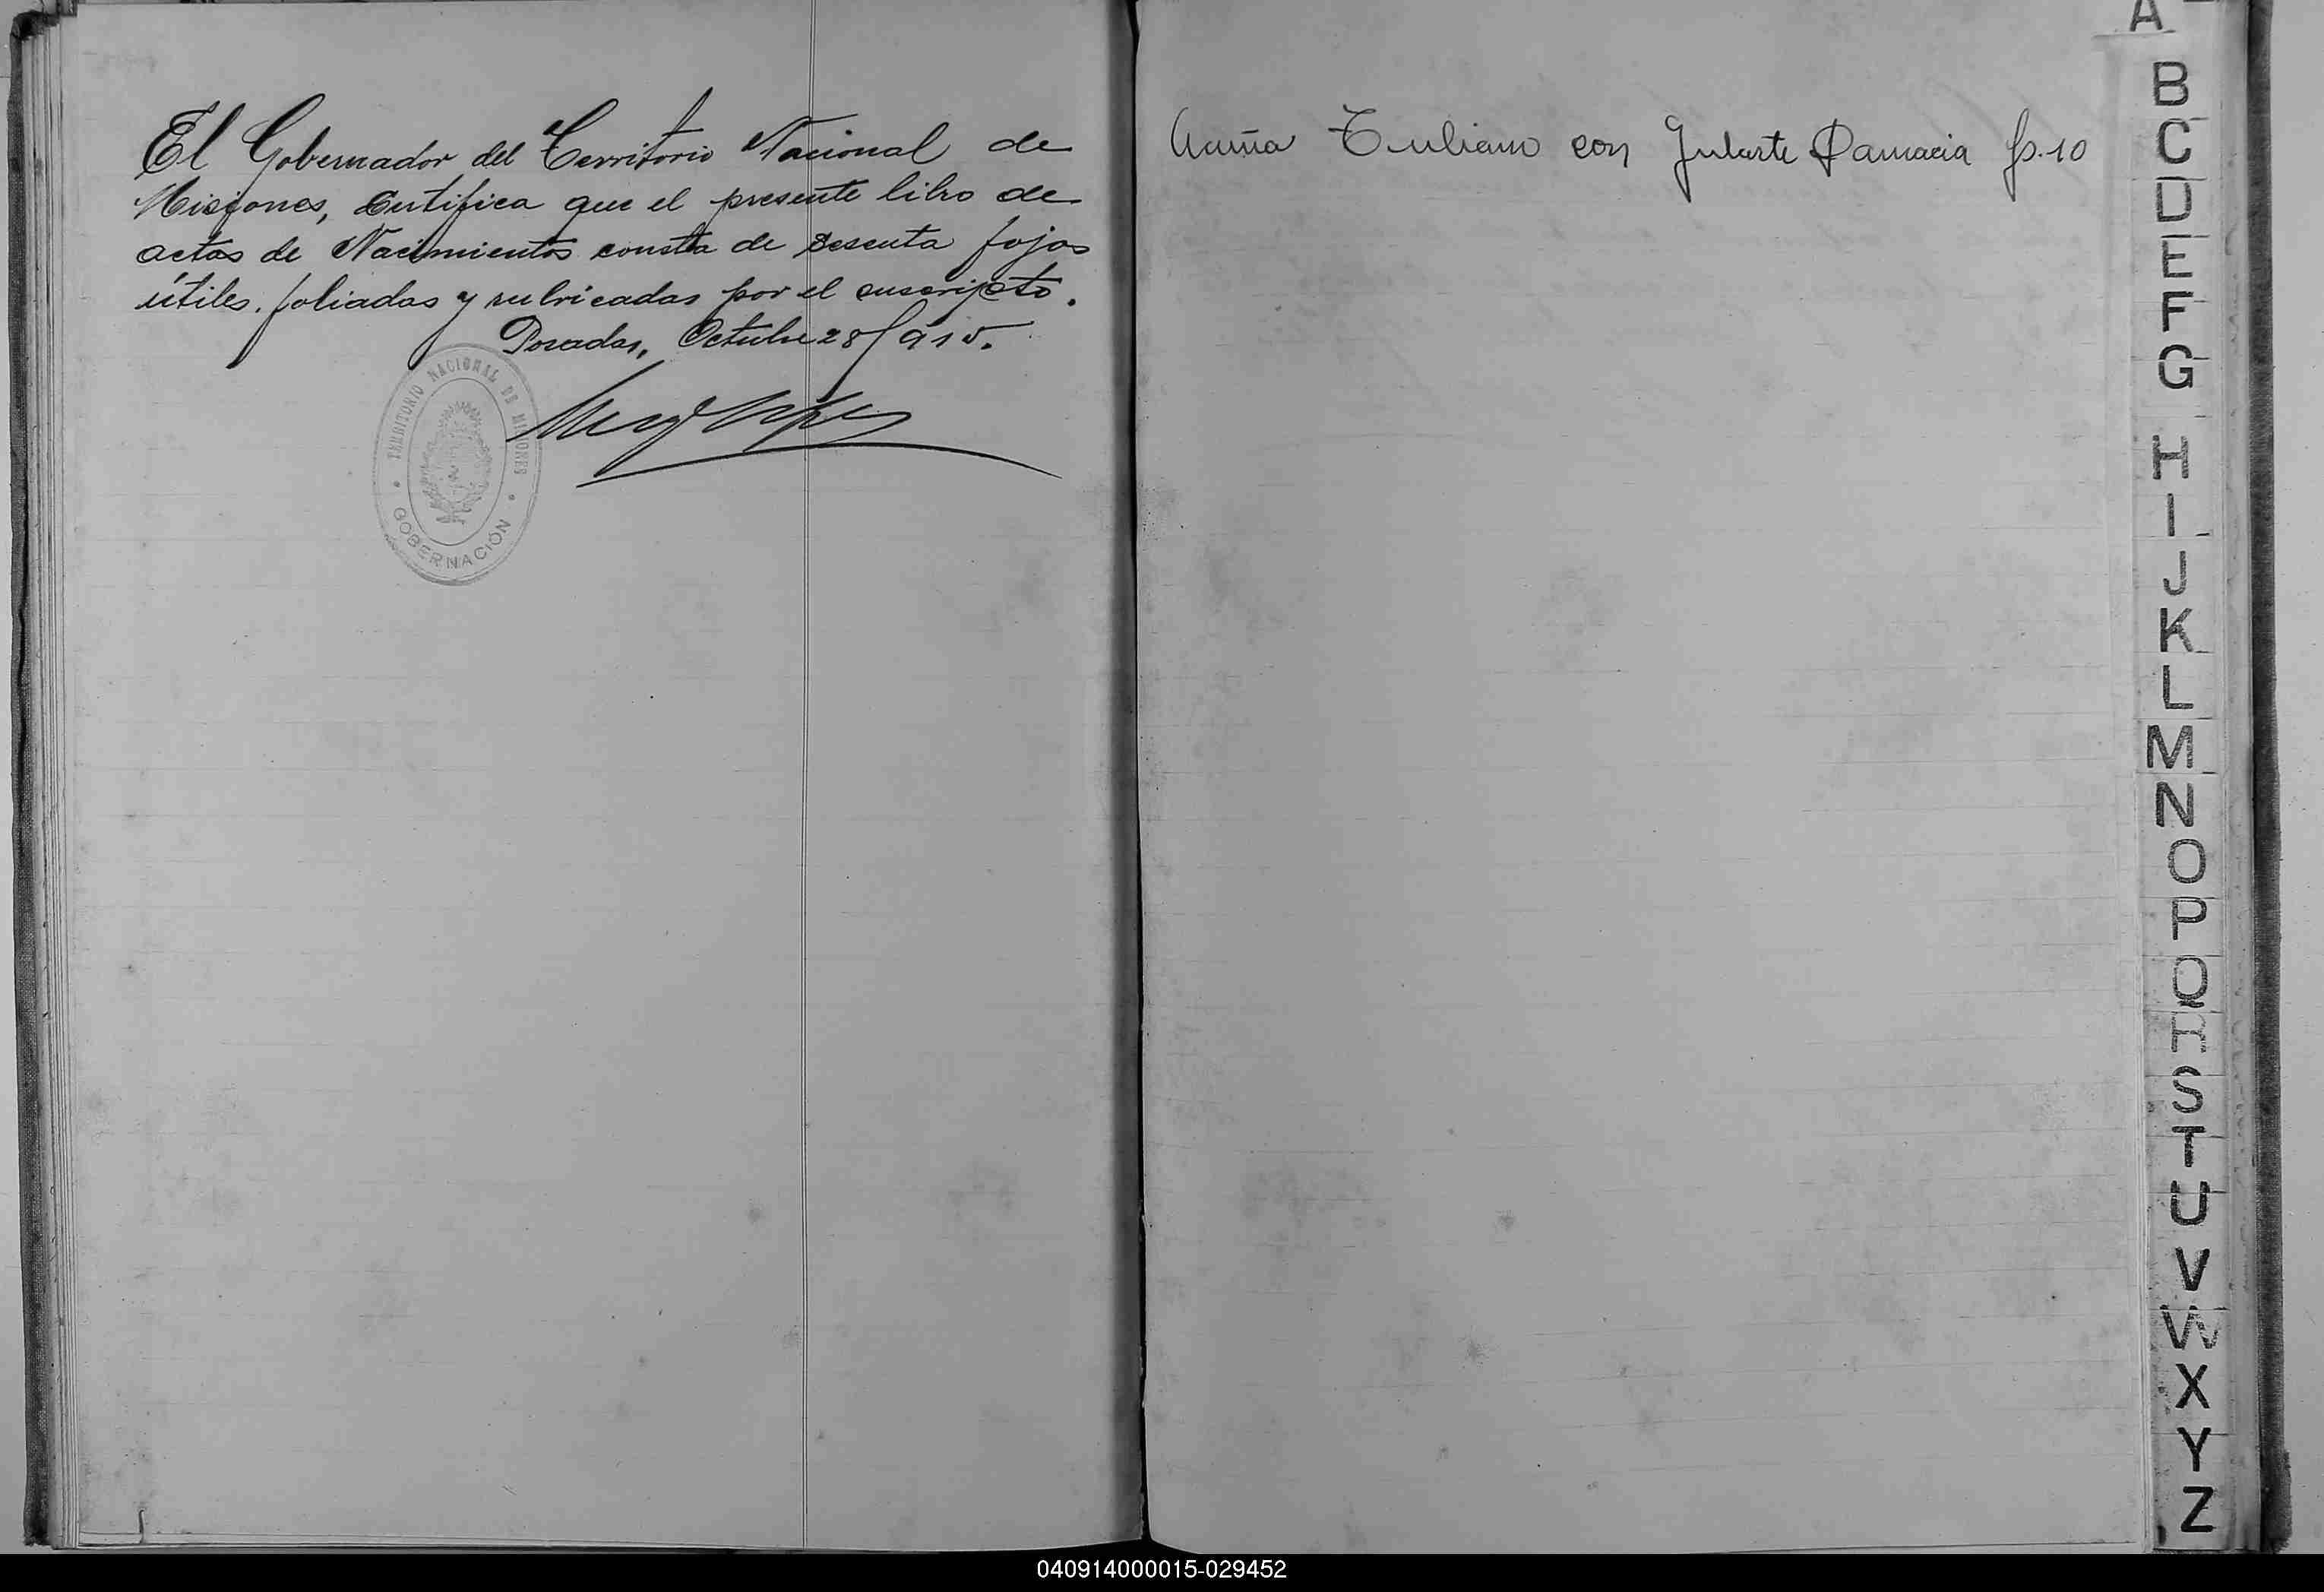 El Gobernador del Territorio Nacional de
Misiones, Certifica que el presente libro de
actas de Nacimientos consta de sesenta fojas
útiles. foliadas y rubricadas por el suscripto.
Posadas, Octubre 28/915.
TERRITORIO NACIONAL DE MISIONES
GOBERNACIÓN
Acuña con Jularte Damacia fs. 10
A
B
C
D
E
F
G
H
I
J
K
L
M
N
O
P
Q
R
S
T
U
V
W
X
Y
Z
040914000015-029452